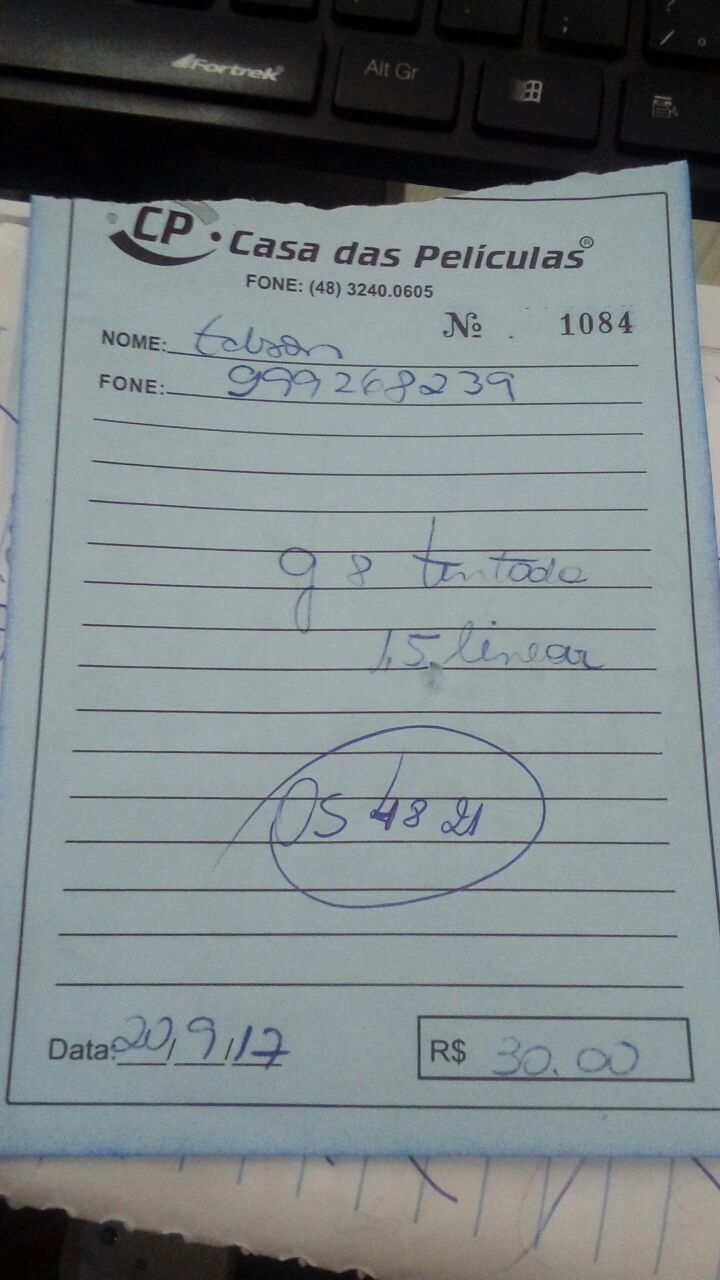 Fortrek Alt Gr
CP Casa das Películas®
FONE: (48) 3240.0605
Nº 1084
NOME: Edson
FONE: 999268239
g 8 tintada
1,5 linear
OS 4821
Data: 20/9/17 R$ 30.00